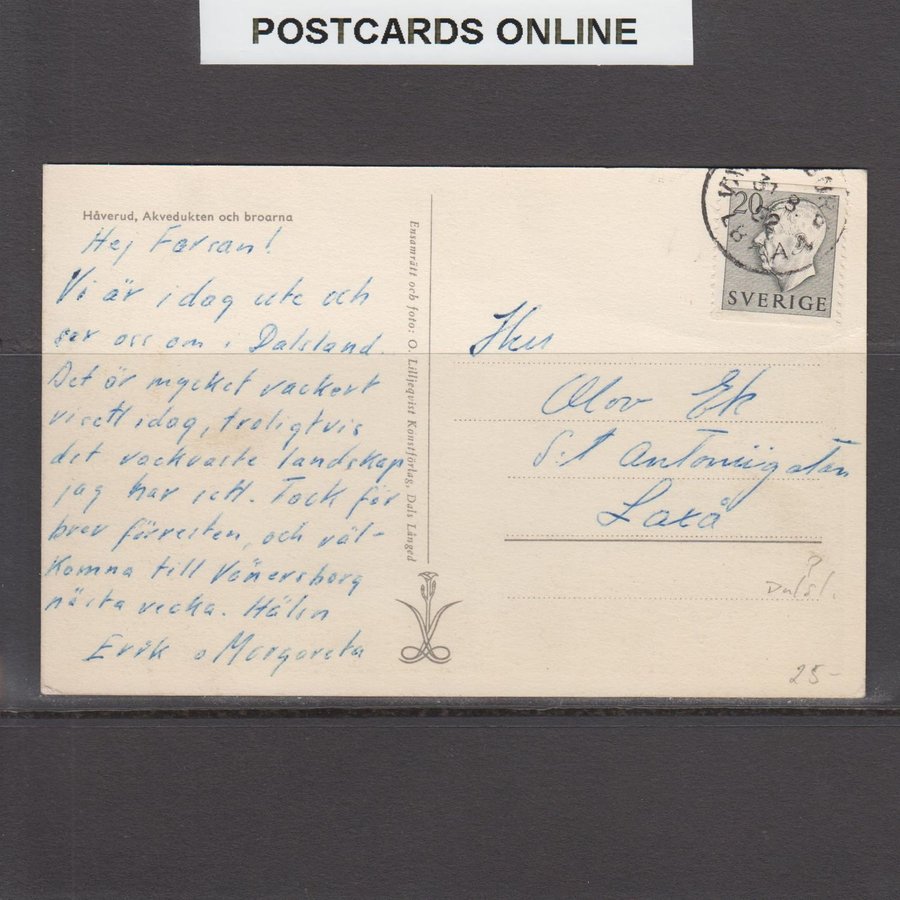 POSTCARDS ONLINE
Håverud, Akvedukten och broarna
Hej Farsan!
Vi är idag ute och
ser oss om i Dalsland.
Det är mycket vackert
vi sett idag, troligtvis
det vackraste landskap
jag har sett. Tack för
brev förresten, och väl-
komna till Vänersborg
nästa vecka. Hälsn
Erik o Margareta
Ensamrätt och foto: O. Lilljeqvist Konstförlag, Dals Långed
20
SVERIGE
31 8
52
A
Hrr
Olov Ek
S:t Antoniigatan
Laxå
Dalsl.
25-